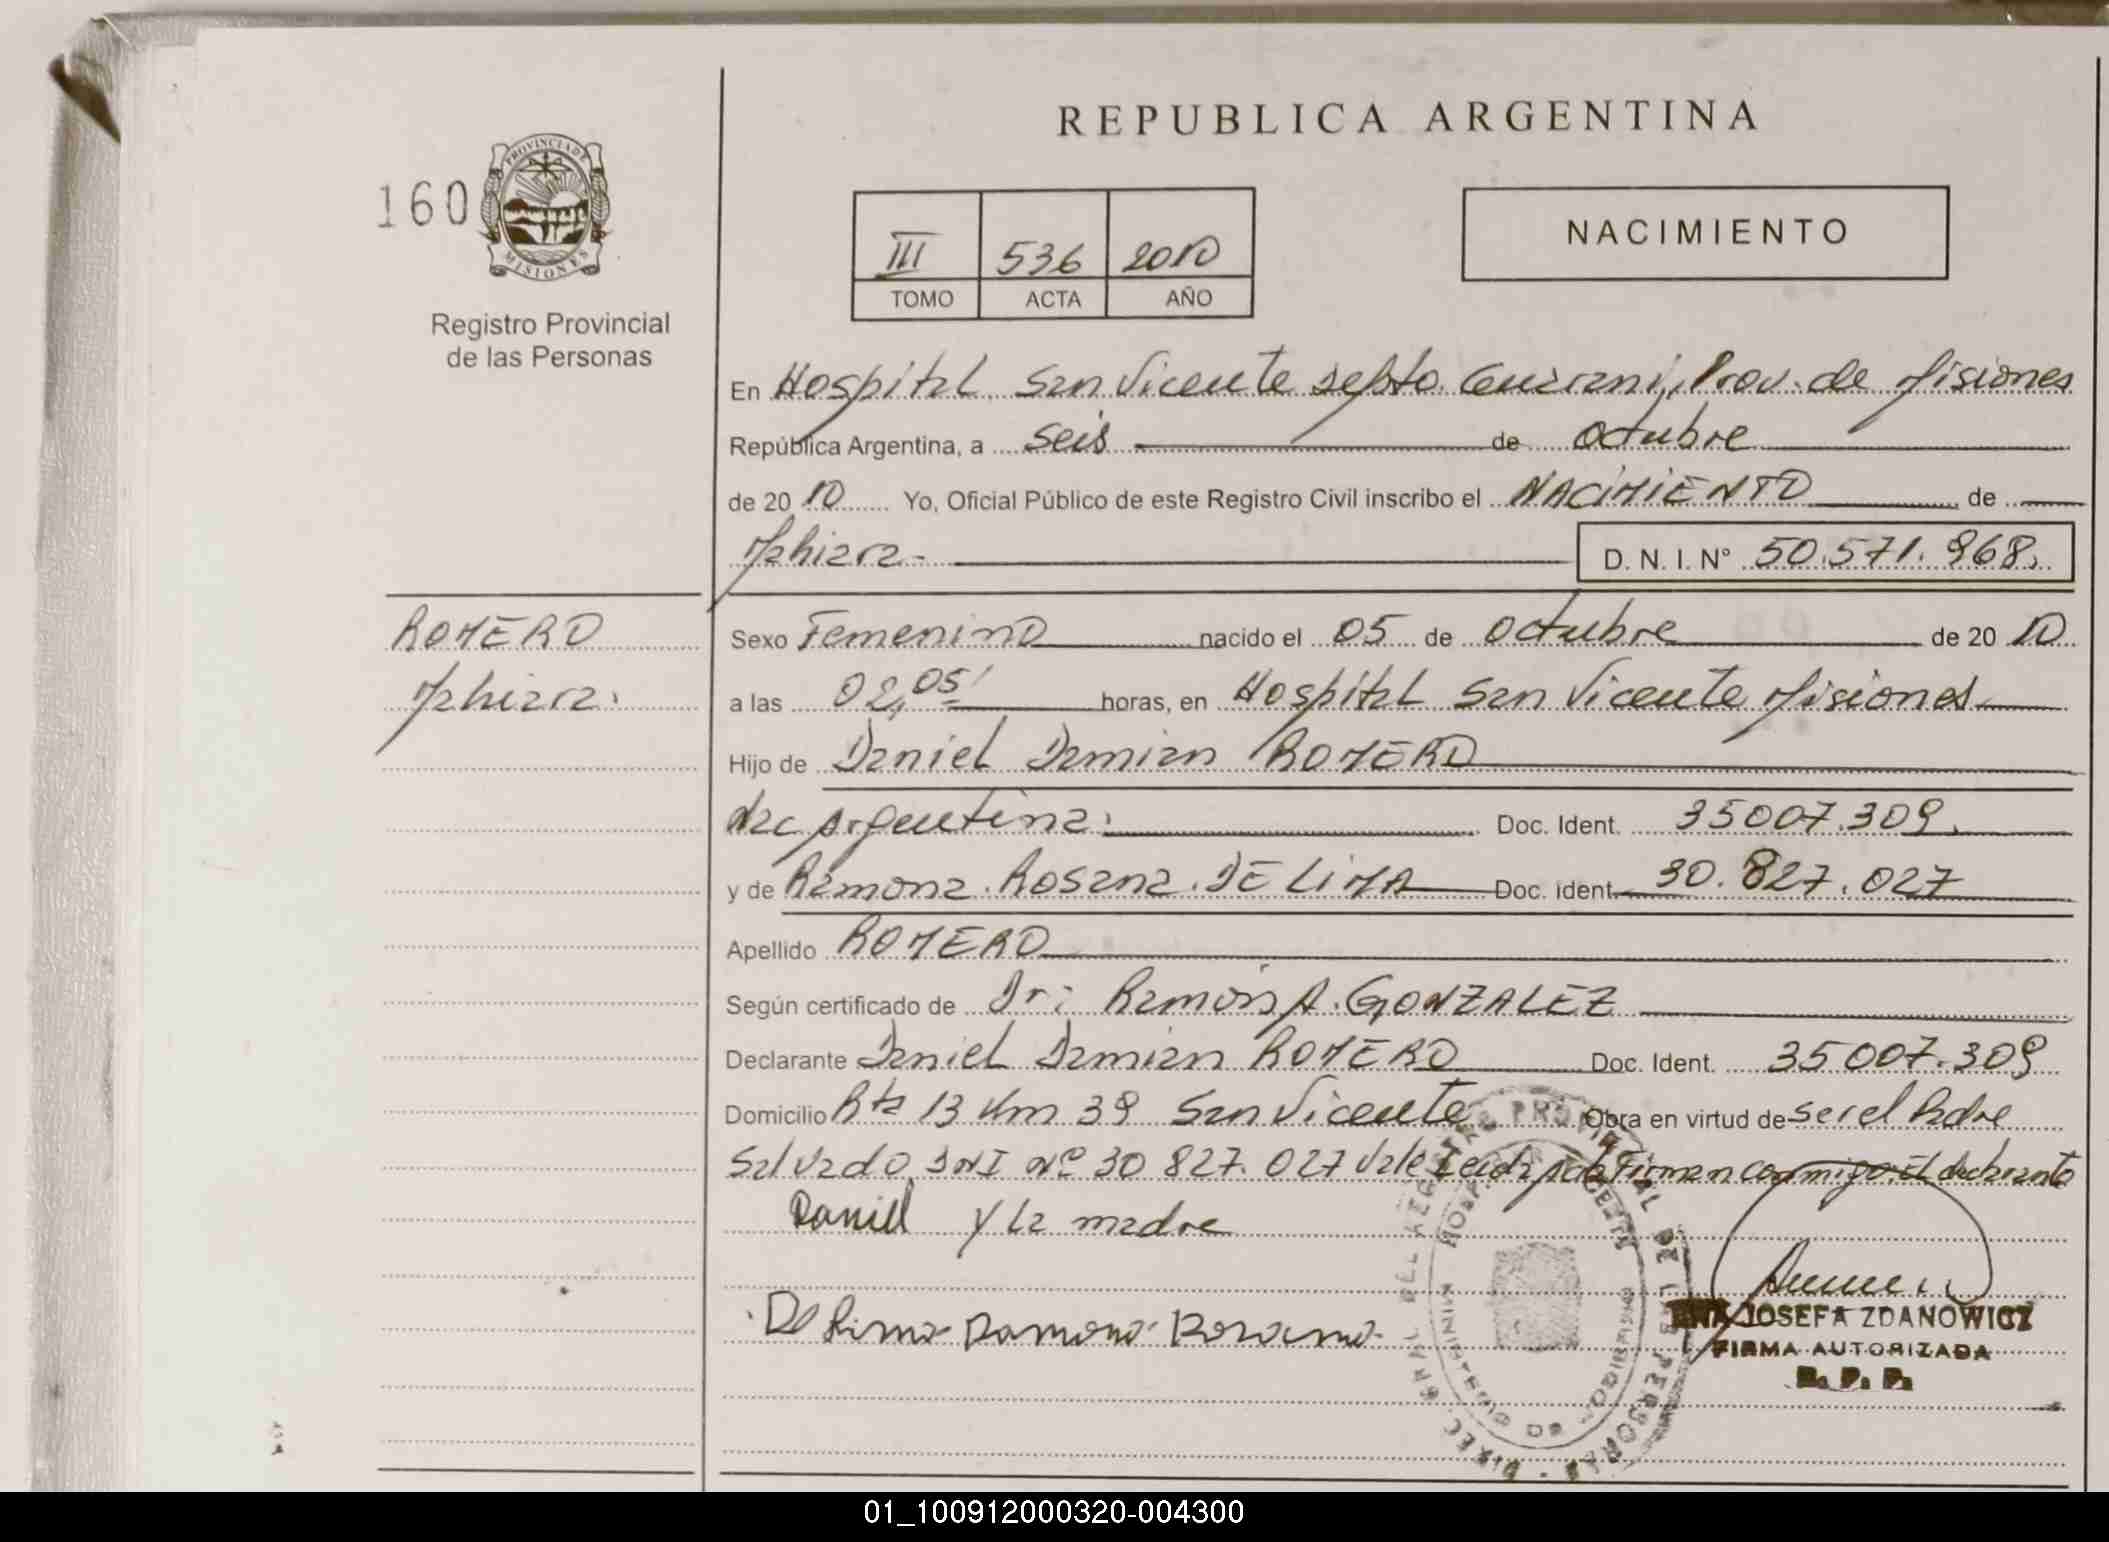 REPUBLICA ARGENTINA
160
PROVINCIA DE
MISIONES
Registro Provincial
de las Personas
III 536 2010
TOMO ACTA AÑO
NACIMIENTO
En Hospital San Vicente depto. Guarani, Prov. de Misiones
República Argentina, a seis de octubre
de 20 10 Yo, Oficial Público de este Registro Civil inscribo el NACIMIENTO de
Mahiara
D. N. I. Nº 50.571.968.
ROMERO
Mahiara.
Sexo Femenino nacido el 05 de octubre de 20 10
a las 02,05' horas, en Hospital San Vicente Misiones
Hijo de Daniel Damian ROMERO
Nac Argentina. Doc. Ident. 35007.309.
y de Ramona Rosana DE LIMA Doc. ident. 30.827.027
Apellido ROMERO
Según certificado de Dr: Ramón A. GONZALEZ
Declarante Daniel Damian ROMERO Doc. Ident. 35007.309
Domicilio Rta 13 Km 39 San Vicente Obra en virtud de ser el Padre
Salvado DNI Nº 30 827.027 Vale Leida acta Firman conmigo El declarante
Daniel y la madre
De Lima Ramona Rosana
JOSEFA ZDANOWICZ
FIRMA AUTORIZADA
R. P. P.
01_100912000320-004300